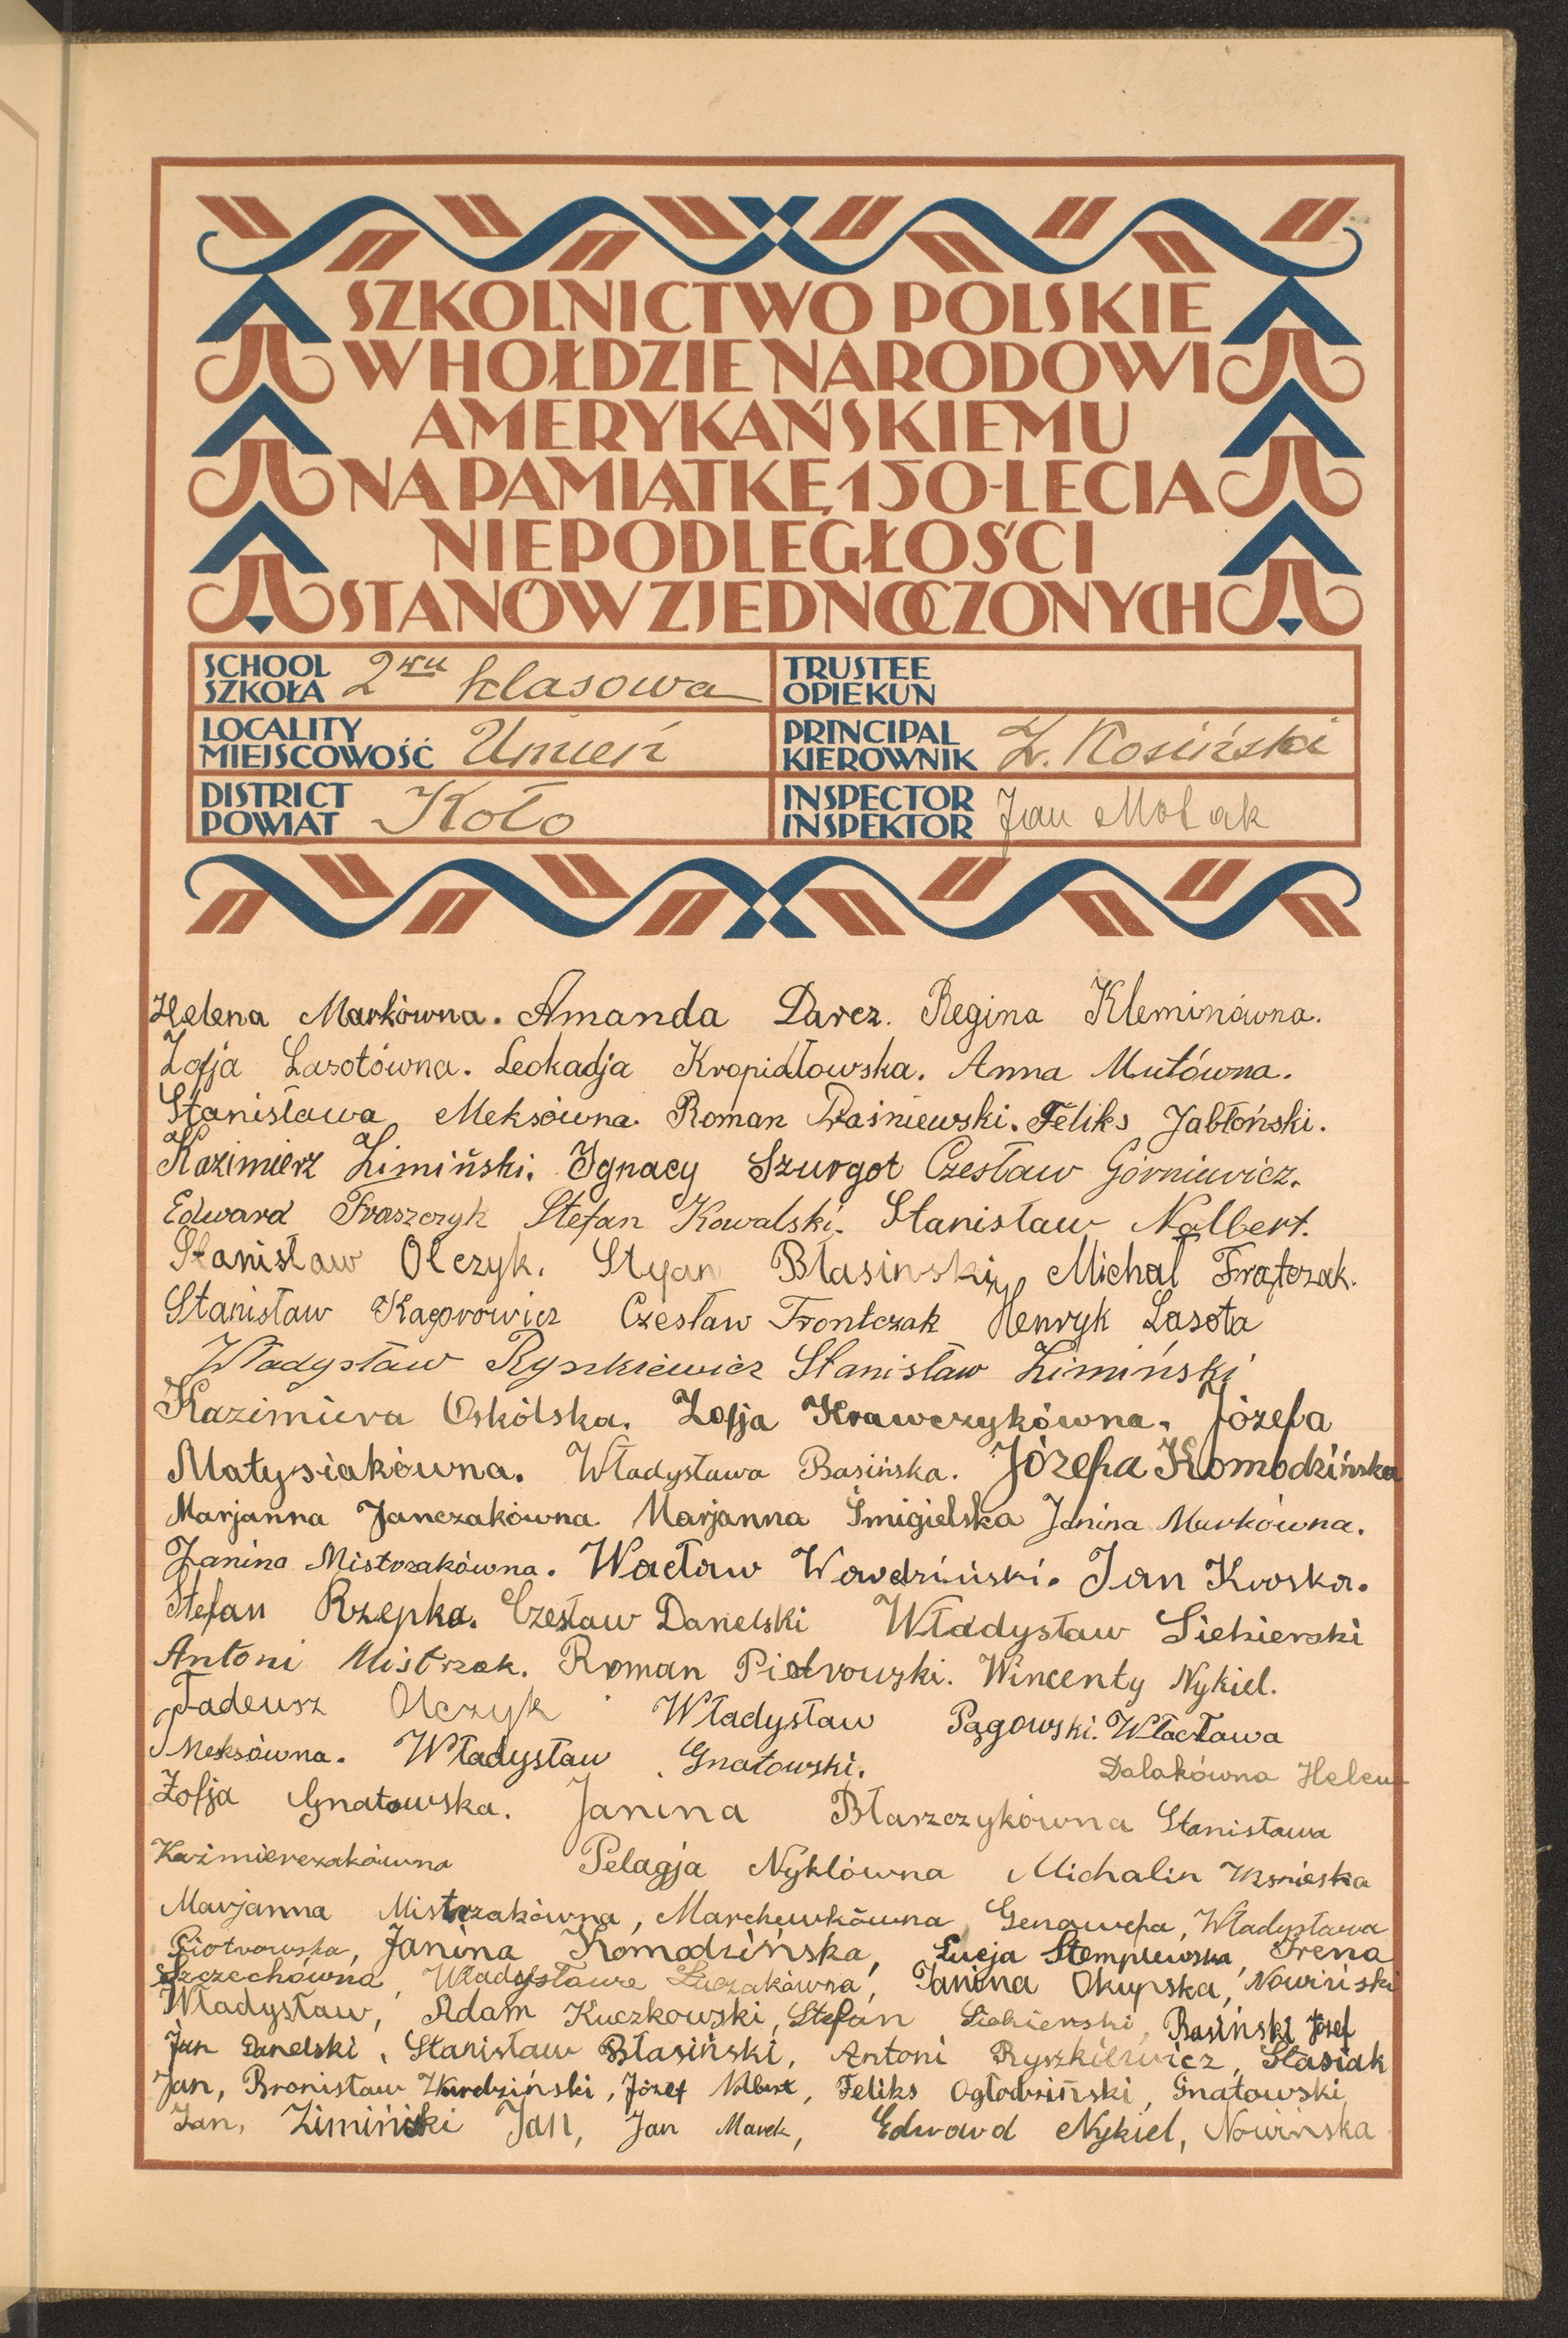 SZKOLNICTWO POLSKIE
W HOŁDZIE NARODOWI
AMERYKAŃSKIEMU
NA PAMIĄTKĘ 150-LECIA
NIEPODLEGŁOŚCI
STANÓW ZJEDNOCZONYCH
SCHOOL
SZKOŁA 2wu klasowa
TRUSTEE
OPIEKUN
LOCALITY
MIEJSCOWOŚĆ Umień
PRINCIPAL
KIEROWNIK Z. Kosiński
DISTRICT
POWIAT Koło
INSPECTOR
INSPEKTOR Jan
Helena Markówna. Amanda Darcz. Regina Kleminówna.
Zofja Lasotówna. Leokadja Kropidłowska. Anna Mutówna.
Stanisława Meksówna. Roman Draśniewski. Feliks Jabłoński.
Kazimierz Zimiński. Ignacy Szurgot Czesław Górniewicz.
Edward Fraszczyk Stefan Kowalski. Stanisław Nalbert.
Stanisław Olczyk. Błasinski Michał Frątczak.
Stanisław Kacprowicz Czesław Frontczak Henryk Lasota
Władysław Ryszkiewicz Stanisław Zimiński
Kazimiera Oskólska. Zofja Krawczykówna. Józefa
Matysiakówna. Władysława Basińska. Józefa Komodzińska
Marjanna Janczakówna. Marjanna Śmigielska Janina Markówna.
Janina Mistrzakówna. Wacław Wawdziński. Jan Kroska.
Stefan Rzepka. Czesław Danelski Władysław Siekierski
Antoni Mistrzak. Roman Piotrowski. Wincenty Nykiel.
Tadeusz Olczyk Władysław Pągowski. Włacława
Meksówna. Władysław Gnatowski. Dalakówna Helena
Zofja Gnatowska. Janina Błaszczykówna Stanisława
Kaźmierczakówna Pelagja Nyklówna Michalin
Marjanna Mistrzakówna, Marchewkówna Genowefa, Władysława
Piotrowska, Janina Komodzińska, Łucja Stemplewska, Irena
Szczechówna, Władysława Łuczakówna, Janina Okupska, Nowiński
Władysław, Adam Kuczkowski, Stefan Siekierski, Basiński Józef
Jan Danelski, Stanisław Błasiński, Antoni Ryszkiewicz, Stasiak
Jan, Bronisław Józef Nalbert, Feliks Ogłodziński, Gnatowski
Jan, Zimiński Jan, Jan Marek, Edward Nykiel, Nowińska